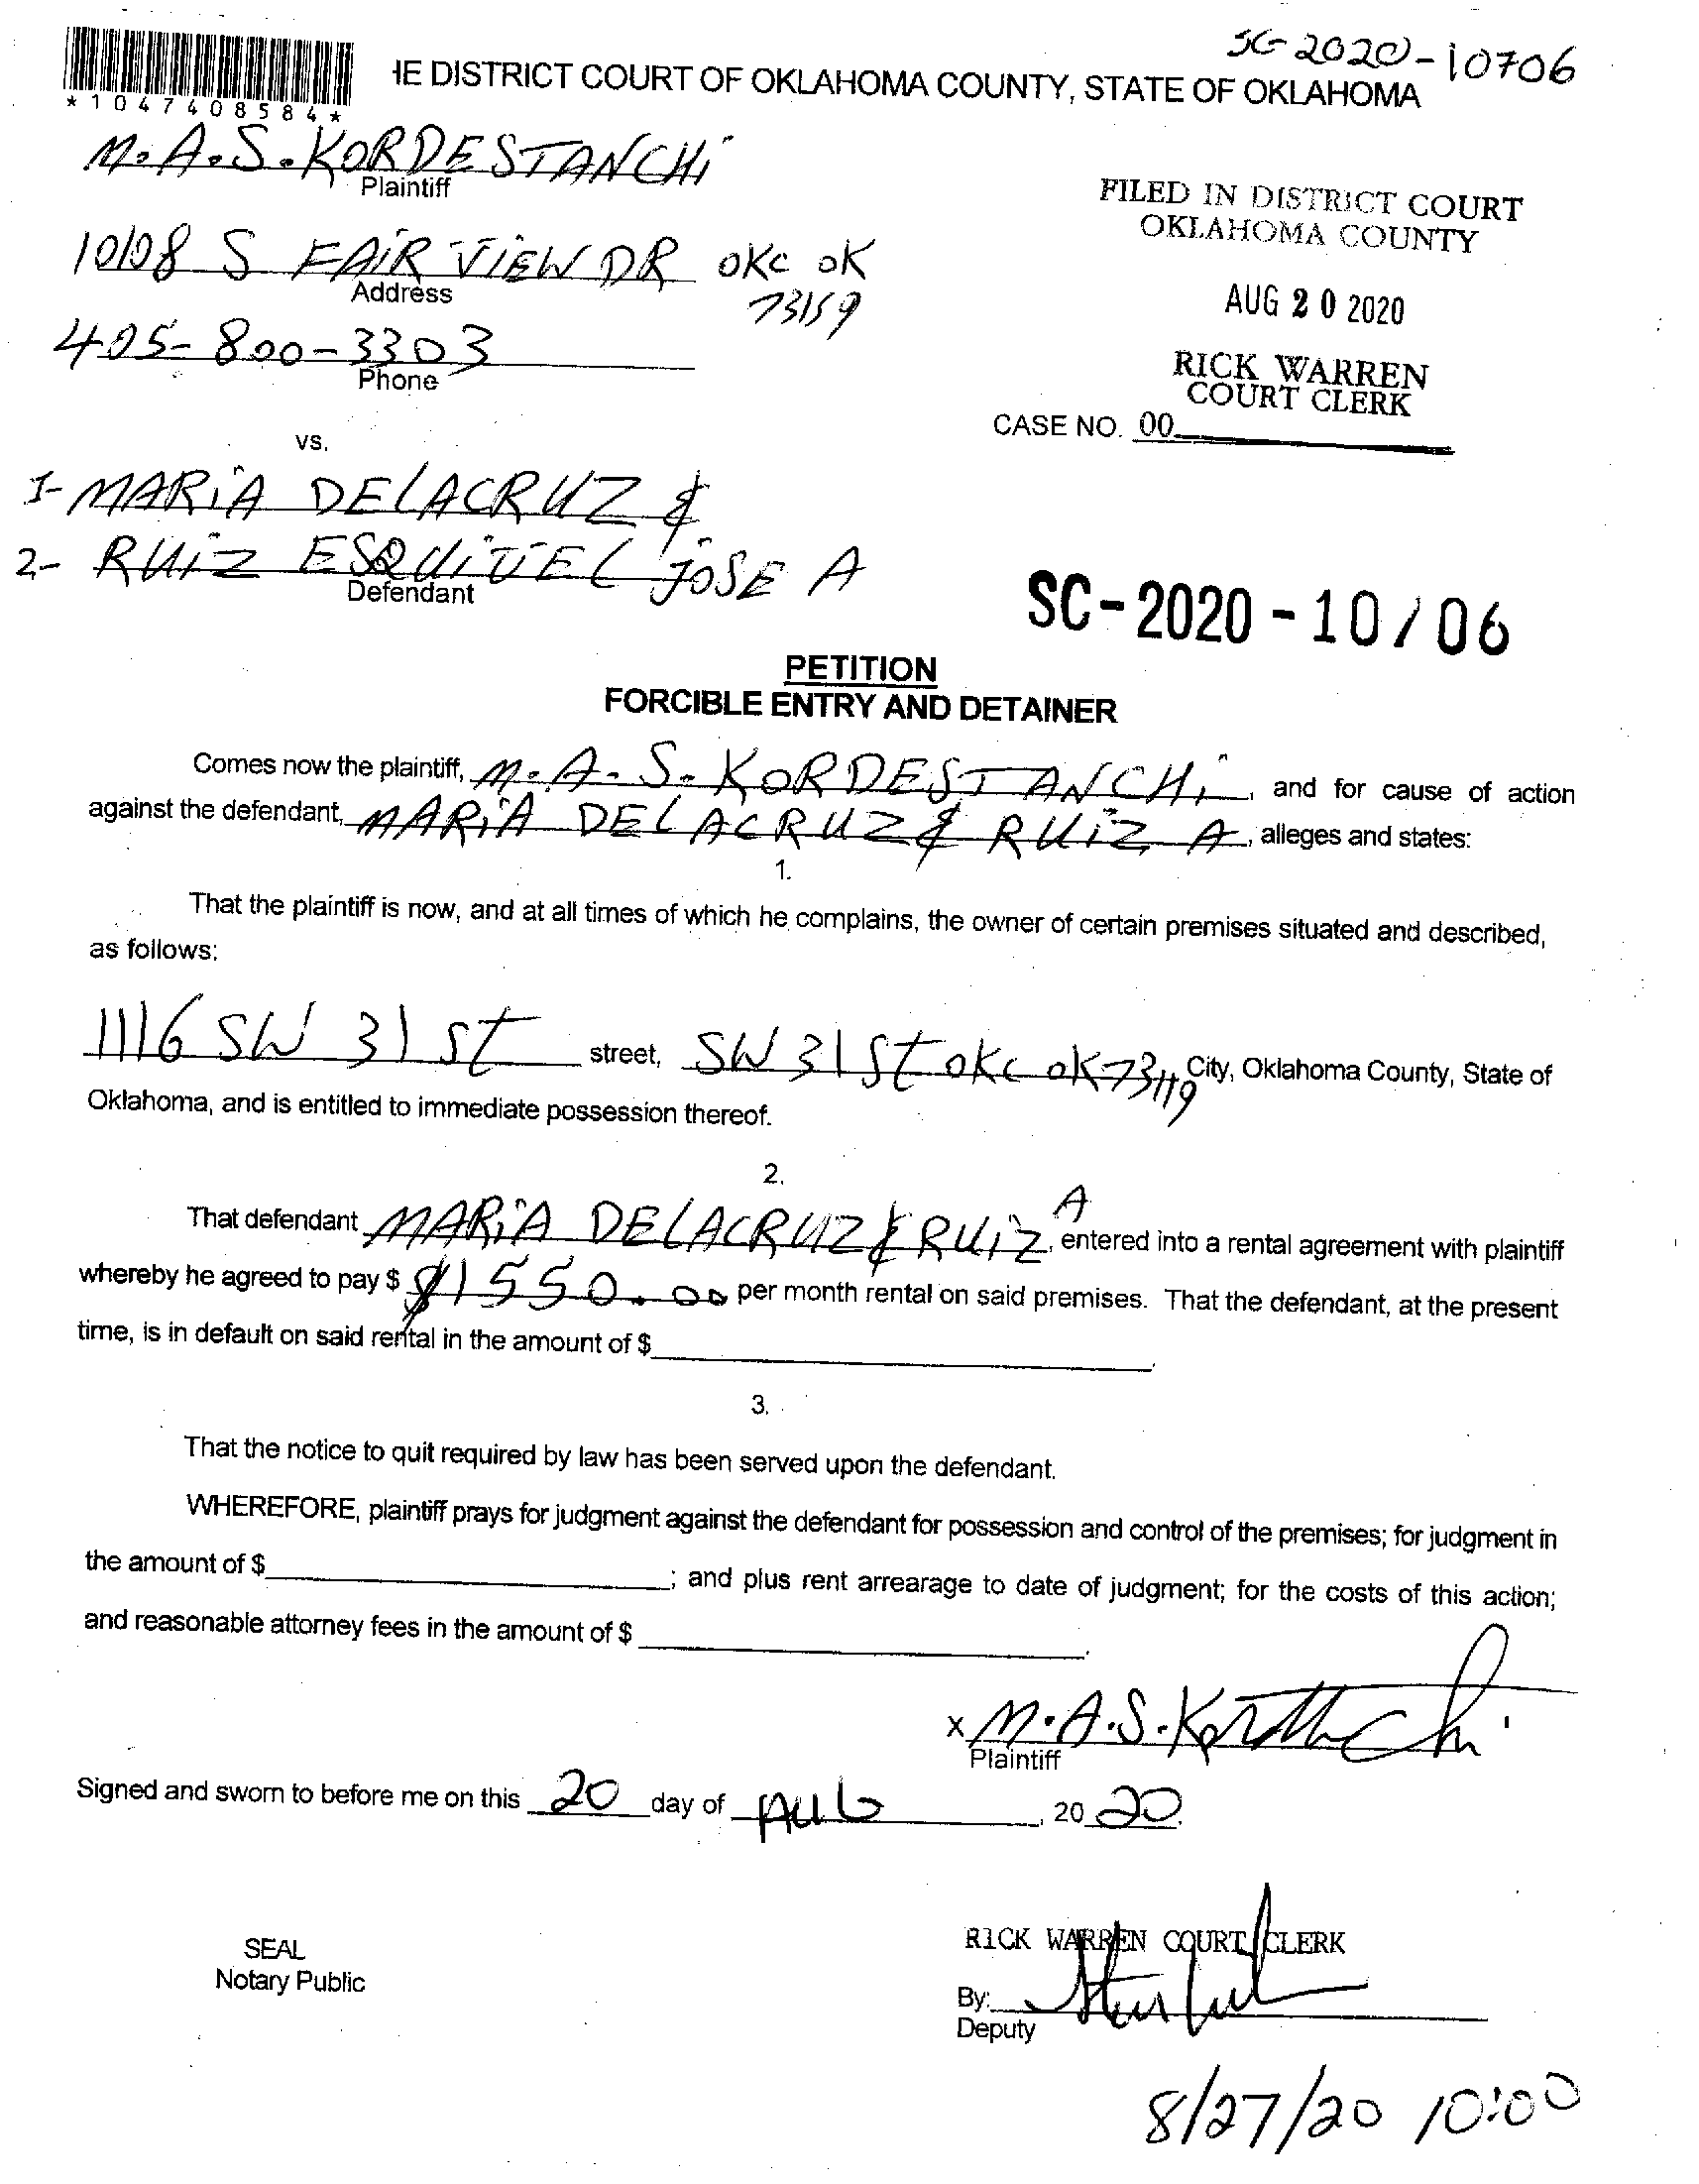 SC-2020-10706
*1047408584*
HE DISTRICT COURT OF OKLAHOMA COUNTY, STATE OF OKLAHOMA
M. A. S. KORDESTANCHi
Plaintiff
FILED IN DISTRICT COURT
OKLAHOMA COUNTY
10108 S FAIR VIEW DR OKC OK
Address
73159
AUG 20 2020
405-800-3303
Phone
RICK WARREN
COURT CLERK
CASE NO. 00
vs.
1- MARiA DELACRUZ &
2- RUiZ ESQUiVEL JOSE A
Defendant
SC-2020-10706
PETITION
FORCIBLE ENTRY AND DETAINER
Comes now the plaintiff, M. A. S. KORDESTANCHi, and for cause of action
against the defendant, MARiA DELACRUZ & RUiZ A, alleges and states:
1.
That the plaintiff is now, and at all times of which he complains, the owner of certain premises situated and described,
as follows:
1116 SW 31 St street, SW 31 St OKC OK 73119 City, Oklahoma County, State of
Oklahoma, and is entitled to immediate possession thereof.
2.
That defendant MARiA DELACRUZ & RUiZ A, entered into a rental agreement with plaintiff
whereby he agreed to pay $ $1550.00 per month rental on said premises. That the defendant, at the present
time, is in default on said rental in the amount of $
3.
That the notice to quit required by law has been served upon the defendant.
WHEREFORE, plaintiff prays for judgment against the defendant for possession and control of the premises; for judgment in
the amount of $ ; and plus rent arrearage to date of judgment; for the costs of this action;
and reasonable attorney fees in the amount of $ .
X M.A.S.
Plaintiff
Signed and sworn to before me on this 20 day of AUG, 20 20.
SEAL
Notary Public
RICK WARREN COURT CLERK
By:
Deputy
8/27/20 10:00